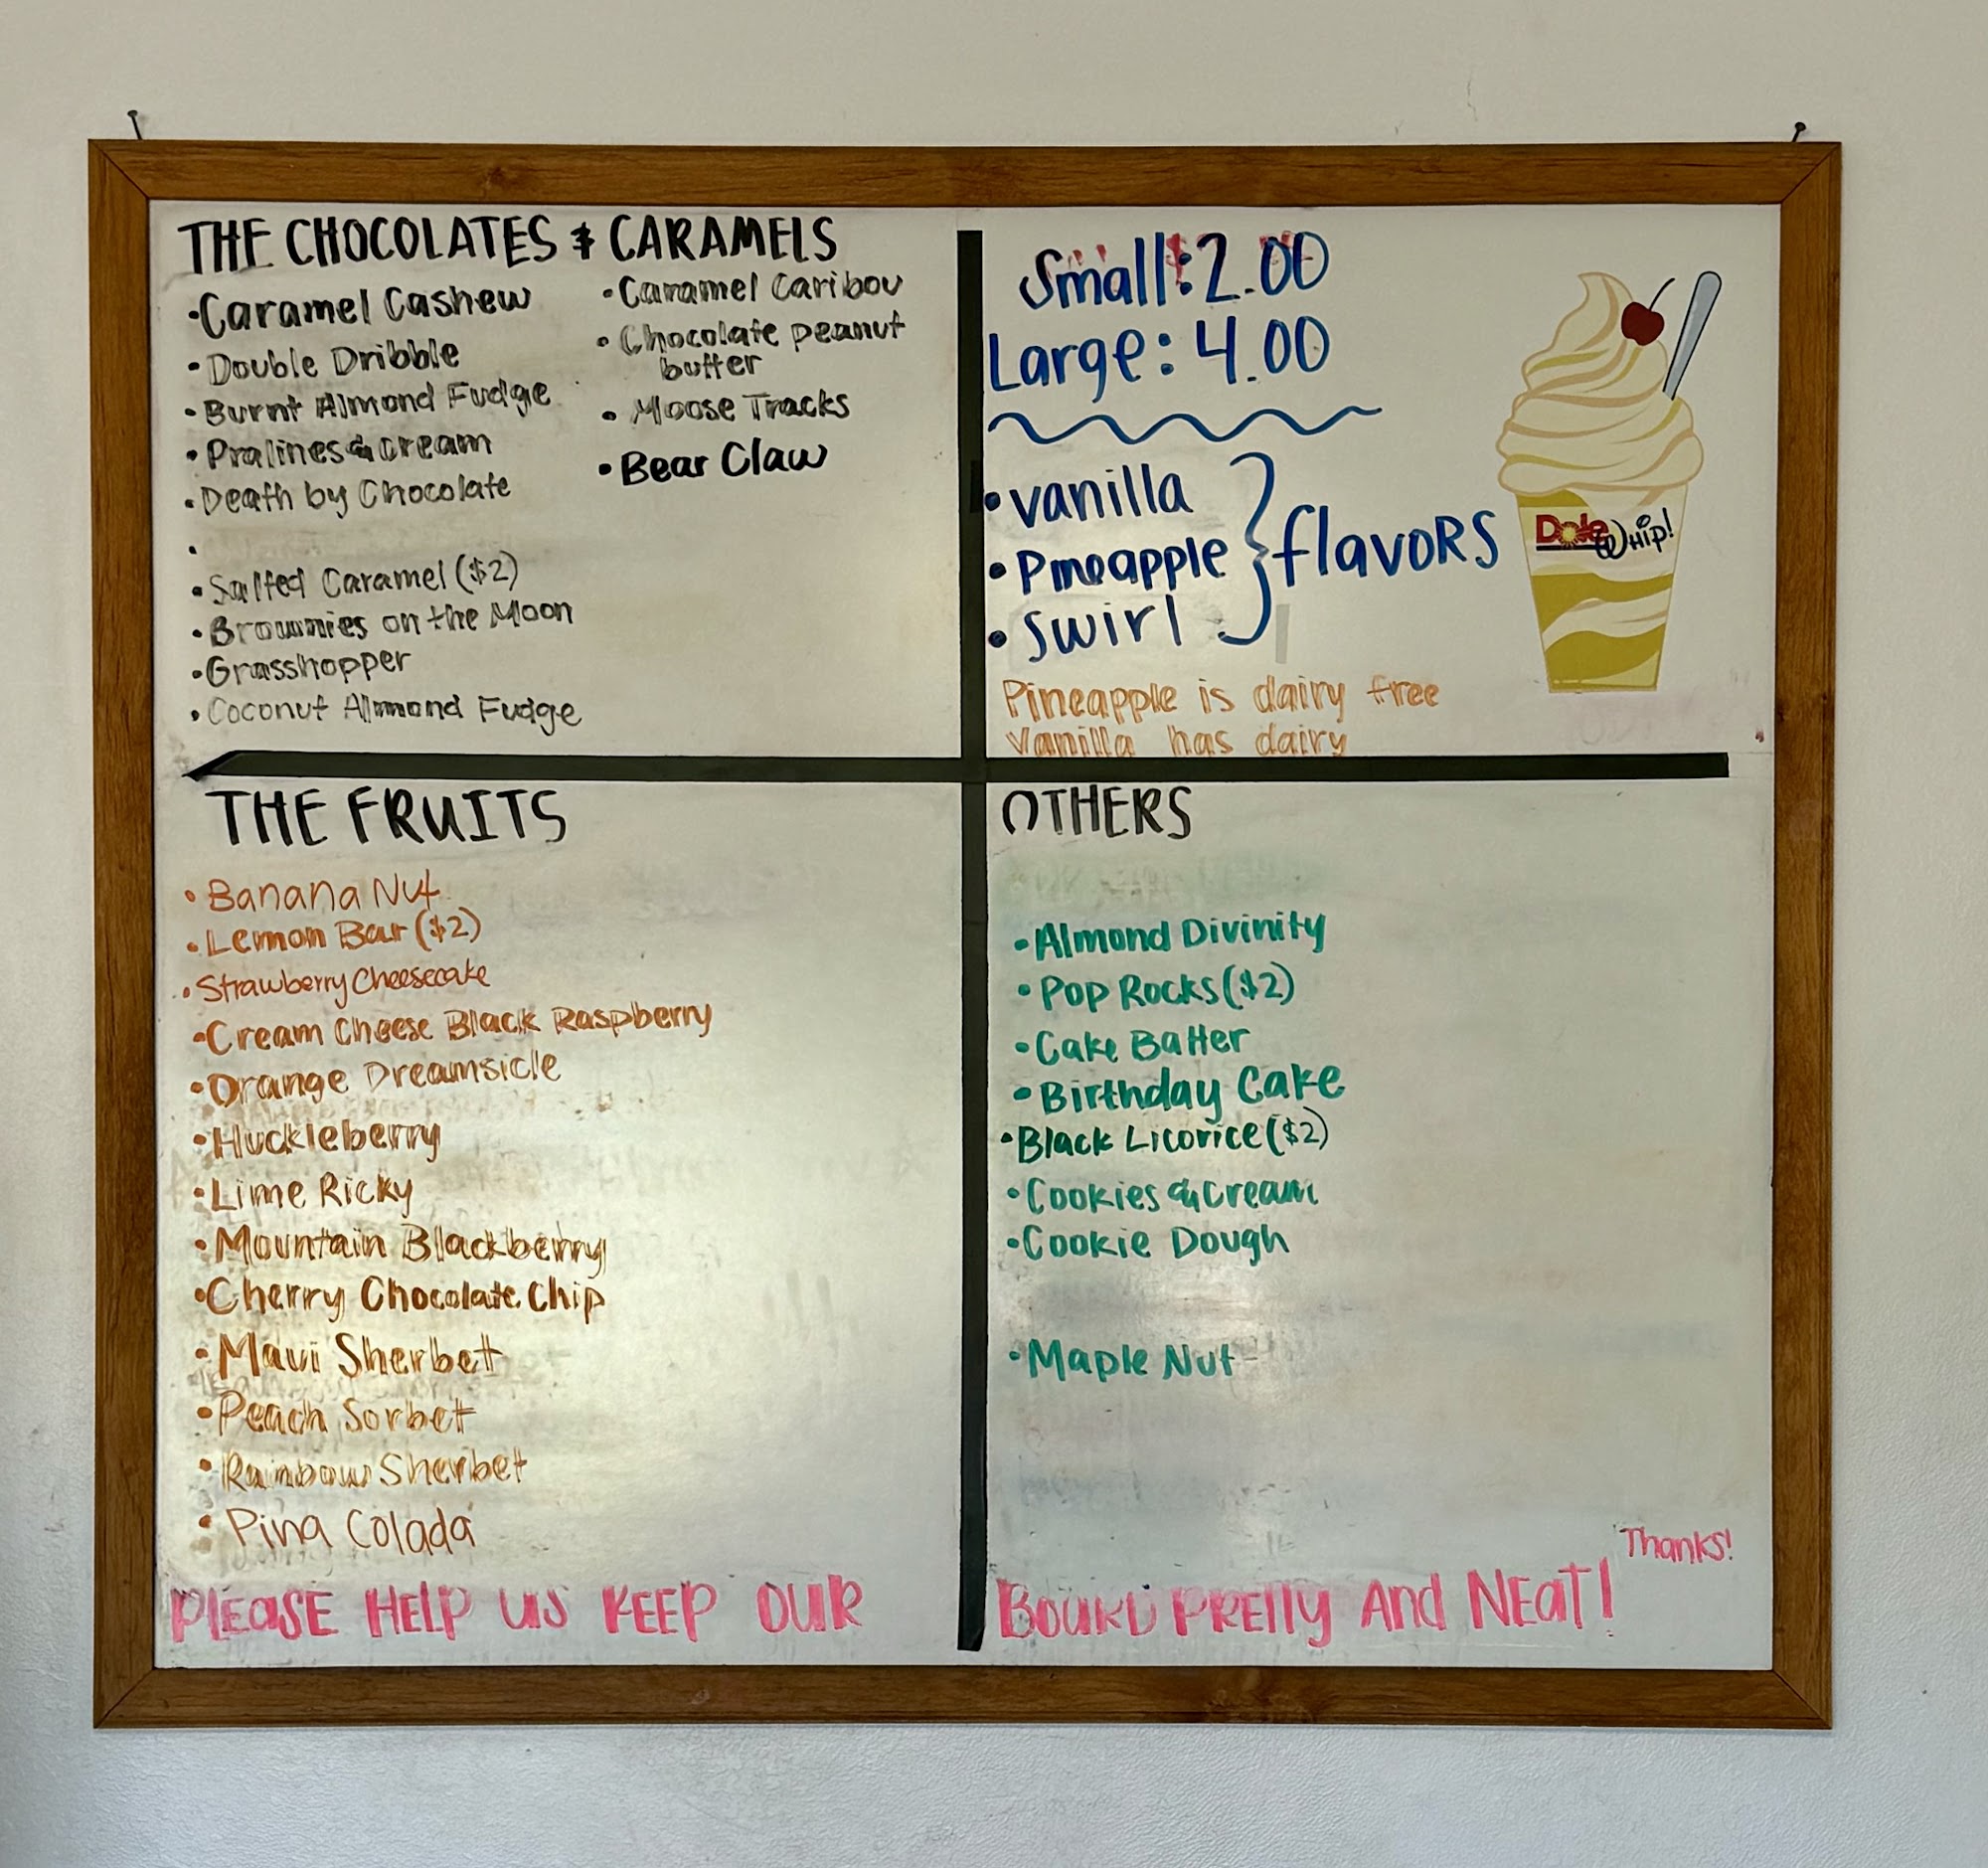 THE CHOCOLATES & CARAMELS
• Caramel Cashew
• Double Dribble
• Burnt Almond Fudge
• Pralines & cream
• Death by Chocolate
•
• Salted Caramel ($2)
• Brownies on the Moon
• Grasshopper
• Coconut Almond Fudge
• Caramel Caribou
• Chocolate peanut
butter
• Moose Tracks
• Bear Claw
Small: 2.00
Large: 4.00
• vanilla
• Pineapple
• swirl
flavoRS
Dole Whip!
Pineapple is dairy free
Vanilla has dairy
THE FRUITS
• Banana Nut
• Lemon Bar ($2)
• Strawberry Cheesecake
• Cream Cheese Black Raspberry
• Orange Dreamsicle
• Huckleberry
• Lime Ricky
• Mountain Blackberry
• Cherry Chocolate Chip
• Maui Sherbet
• Peach Sorbet
• Rainbow Sherbet
• Pina Colada
OTHERS
• Almond Divinity
• Pop Rocks ($2)
• Cake Batter
• Birthday Cake
• Black Licorice ($2)
• Cookies & Cream
• Cookie Dough
• Maple Nut
PLEASE HELP US KEEP OUR BOARD PRETTY And NEAT!
Thanks!